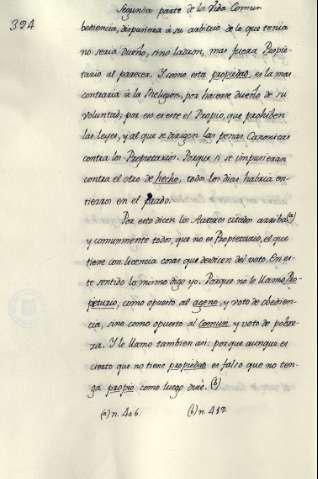 Segunda parte de la Vida Comun
324
bediencia, dispusiera à su arbitrio de lo que tenia
no seria dueño, sino ladron, mas fuera Propie-
tario al parecer. Y como esta propiedad, es la mas
contraria à la Religion, por hacerse dueño de su
voluntad; por eso es este el Propio, que prohiben
las leyes, y al que se dirigen las penas Canonicas
contra los Propietarios. Porque si se impusieran
contra el otro de hecho, todos los dias habria en-
tierros en el prado.
Por esto dicen los Autores citados arriba (a)
y comunmente todos, que no es Propietario, el que
tiene con licencia cosas que desdicen del voto. En es-
te sentido lo mismo digo yo. Porque no le llamo Pro-
petario, como opuesto al ageno, y voto de obedien-
cia, sino como opuesto al Comun, y voto de pobre-
za. Y le llamo tambien asi: porque aunque es
cierto que no tiene propiedad es falso que no ten-
ga propio como luego diré. (b)
(a) n. 406 (b) n. 412